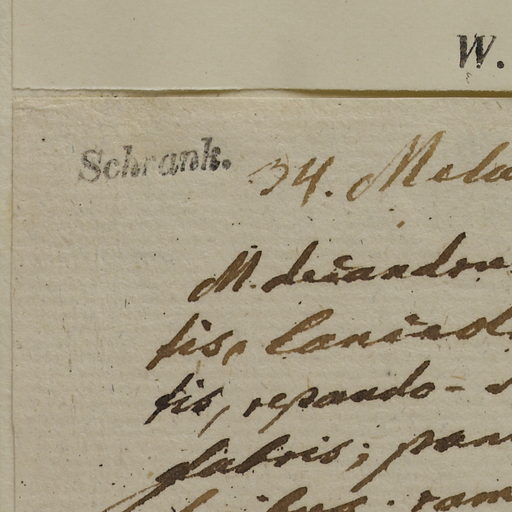 W.
Schrank.
34. Mela
M. decandru
tis, lanceol
tis, repando-
glabris; pani
ram